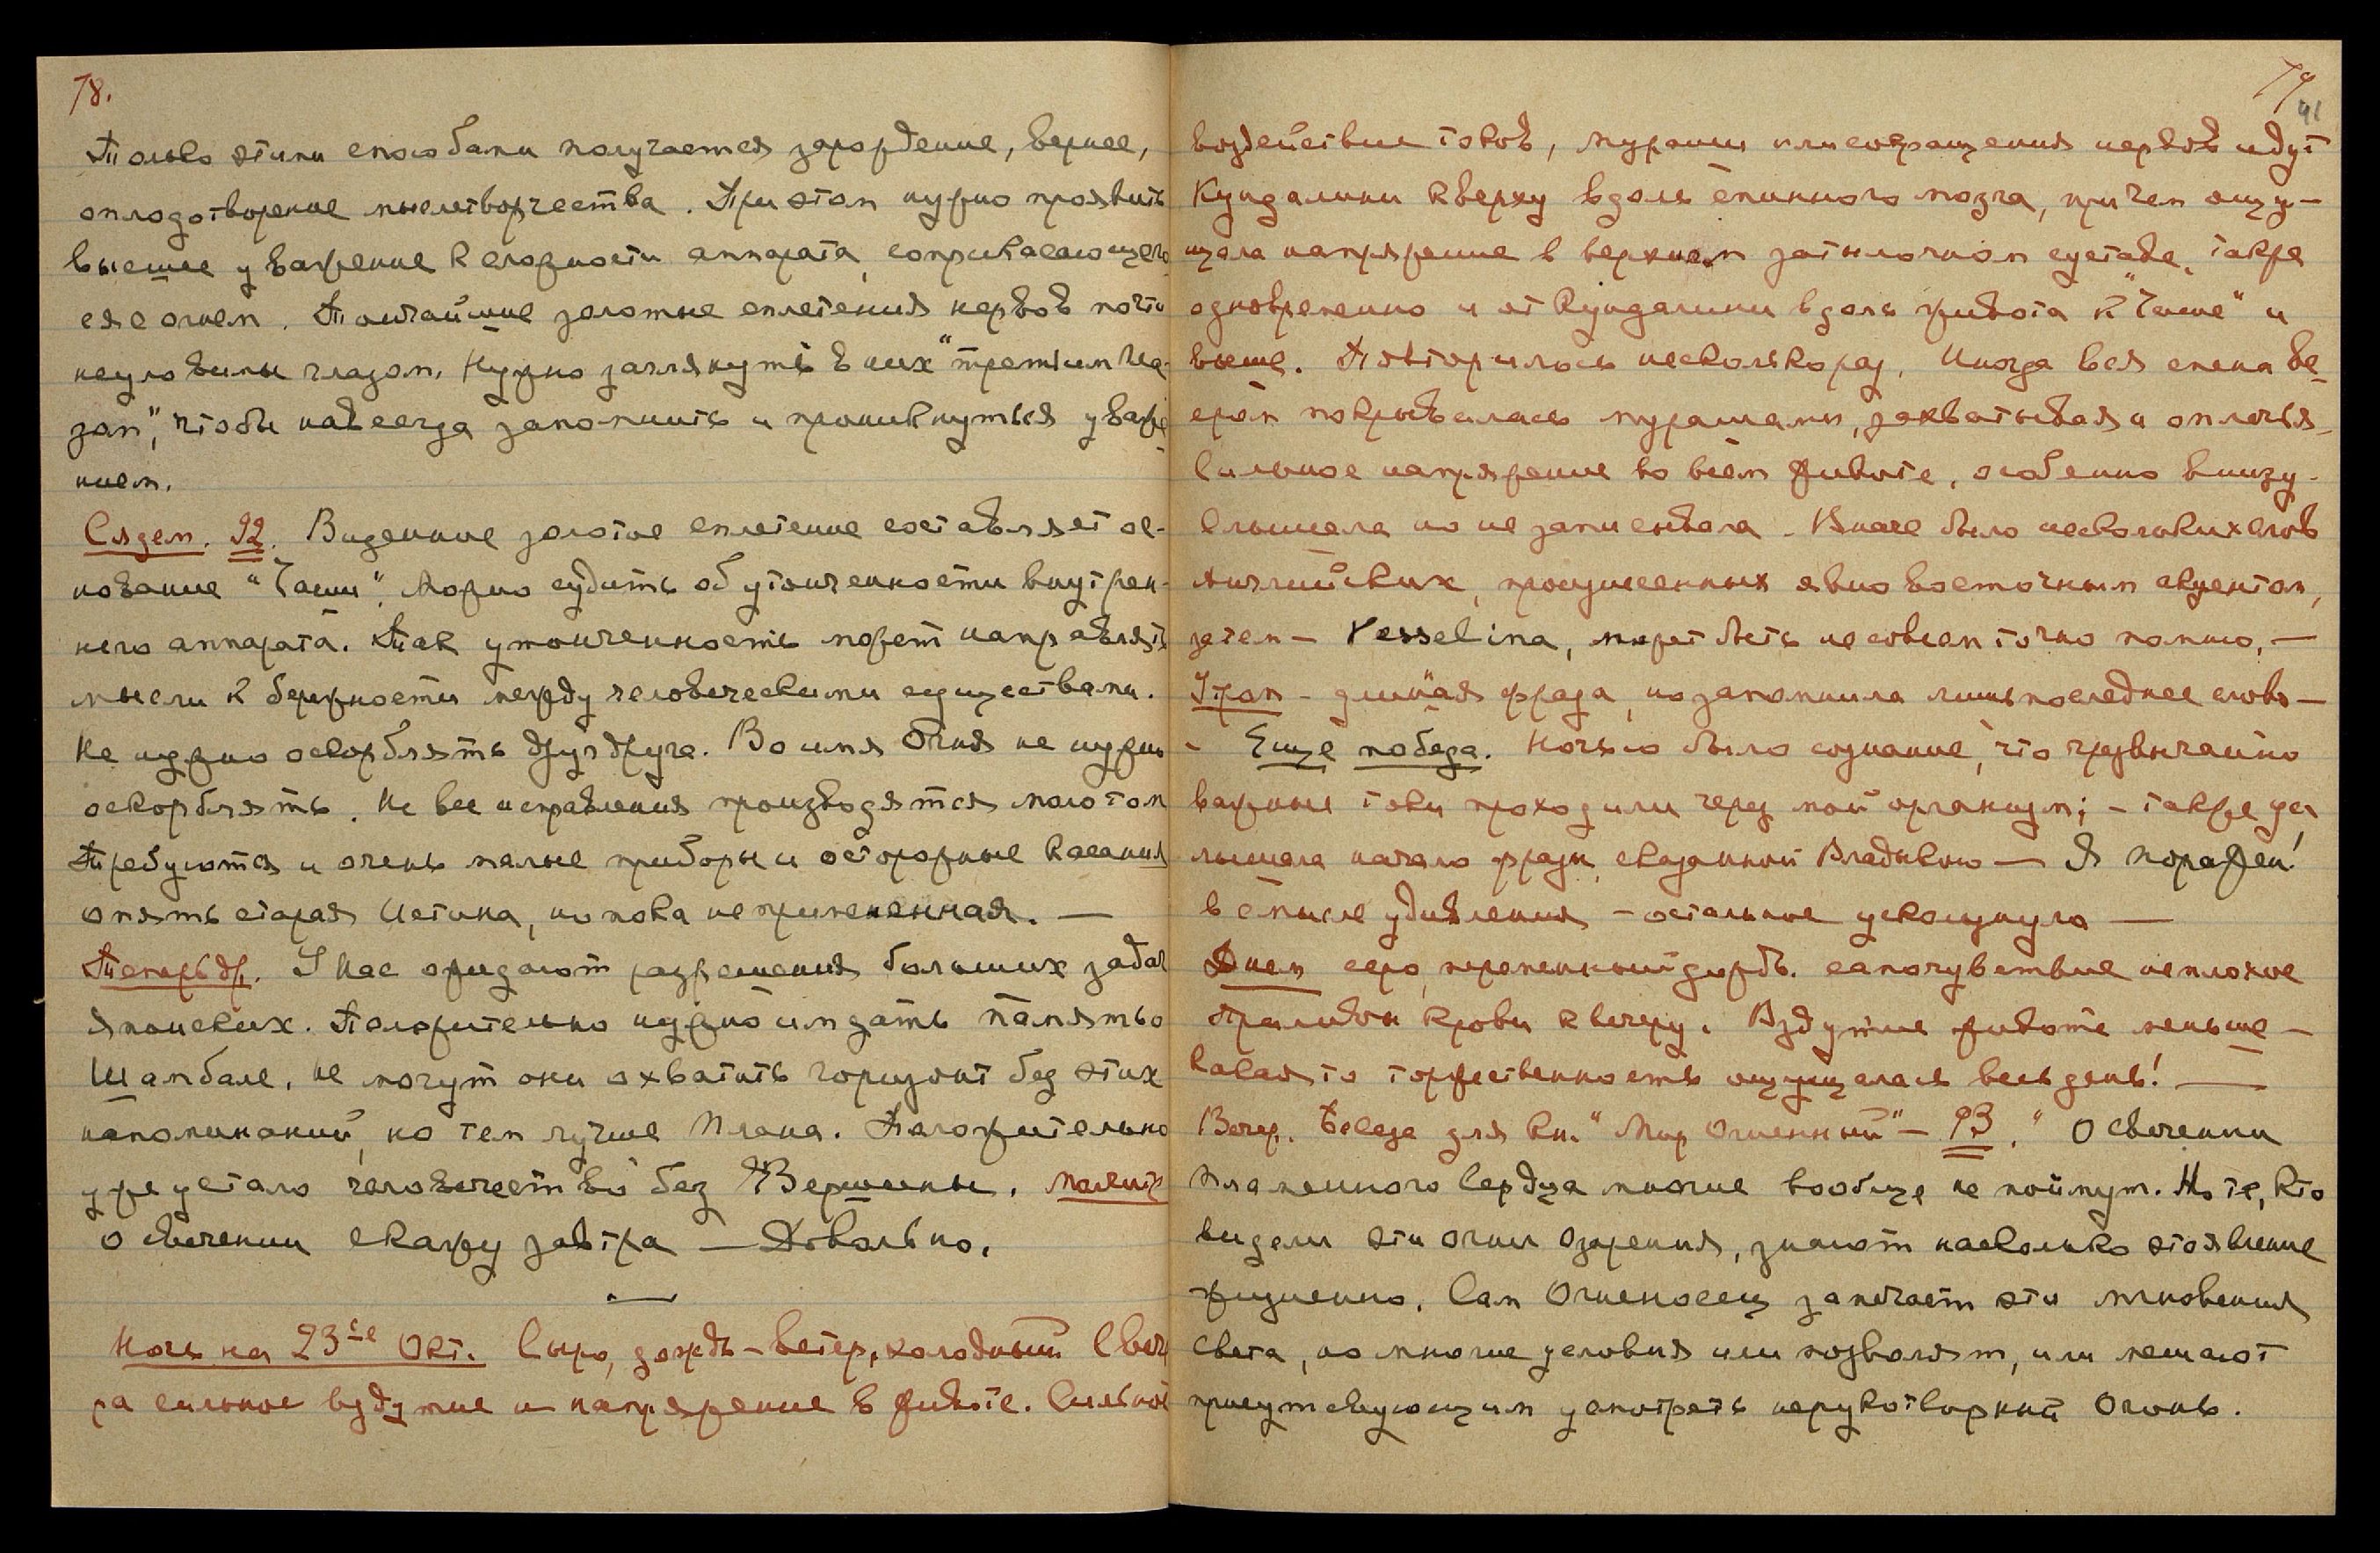 78.
Только этими способами получается зарождение, вернее,
оплодотворение мыслетворчества. При этом нужно проявить
высшее уважение к сложности аппарата, соприкасающего
ся с огнем. Тончайшие золотые сплетения нервов почти
неуловимы глазом. Нужно заглянуть в них "третьим гла-
зом", чтобы навсегда запомнить и проникнуться уваже
нием.
Сядем. 92. Виденное золотое сплетение составляет ос-
нование "Чаши". Можно судить об утонченности внутрен-
него аппарата. Так утонченность может направлять
мысли к бережности между человеческими существами.
Не нужно оскорблять друг друга. Во имя Огня не нужно
оскорблять. Не все исправления производятся молотом
Требуются и очень малые приборы и осторожные касания
опять старая Истина, но пока не примененная. —
Теперь др. У Нас ожидают разрешения больших задач
Японских. Положительно нужно им дать память о
Шамбале, не могут они охватить горизонт без этих
напоминаний, но тем лучше Плана. Положительно
уже устало человечество без Вершины.
о свечении скажу завтра — Довольно.
—
Ночь на 23ье Окт. Сыро, дождь – ветер, холодный С вече
ра сильное вздутие и напряжение в животе. Сильное
79
41
воздействие токов, мураши или сокращения нервов идут
Кундалини кверху вдоль спинного мозга, при чем ощу-
щала напряжение в верхнем затылочном суставе, также
одновременно и от Кундалини вдоль живота к "Чаше" и
выше. Повторилось несколько раз, Иногда вся спина ве-
ером покрывалась мурашами, захватывая и оплечья –
Сильное напряжение во всем животе, особенно внизу –
Слышала но не записывала. Вначале было несколько слов
Английских, произнесенных явно восточным акцентом,
затем – Vesselina, может быть не совсем точно помню, —
Утром – длинная фраза, но запомнила лишь последнее слово —
– Еще победа. Ночью было сознание, что чрезвычайно
важные токи проходили через мой организм; – также ус
лышала начало фразы, сказанной Владыкою — Я поражен!
в смысле удивления – остальное ускользнуло —
Днем серо, переменный дождь. самочувствие неплохое
Приливы крови к вечеру. Вздутие живота меньше –
Какая то торжественность ощущалась весь день! —
Вечер. Беседа для кн. "Мир Огненный" – 93. "О свечении
пламенного Сердца многие вообще не поймут. Но те, кто
видели эти огни Озарения, знают насколько это явление
жизненно. Сам Огненосец замечает эти мгновения
Света, но многие условия или позволят, или мешают
присутствующим усмотреть нерукотворный Огонь.